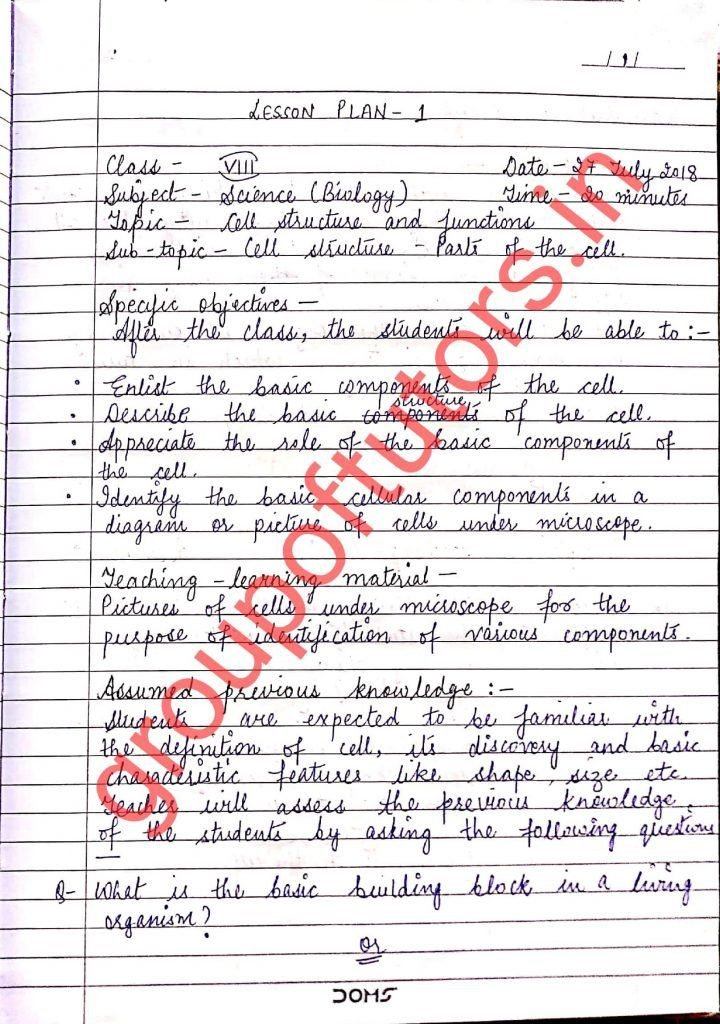 / 1 /
LESSON PLAN - 1
Class - VIII Date - 27 July 2018
Subject - Science (Biology) Time - 20 minutes
Topic - Cell structure and functions
Sub-topic - Cell structure - Parts of the cell.
Specific objectives -
After the class, the students will be able to :-
• Enlist the basic components of the cell.
structure
• Describe the basic components of the cell.
• Appreciate the role of the basic components of
the cell.
• Identify the basic cellular components in a
diagram or picture of cells under microscope.
Teaching - learning material -
Pictures of cells under microscope for the
purpose of identification of various components.
Assumed previous knowledge :-
Students are expected to be familiar with
the definition of cell, its discovery and basic
characteristic features like shape, size etc.
Teacher will assess the previous knowledge
of the students by asking the following questions
—
Q- What is the basic building block in a living
organism?
Or
DOMS
groupoftutors.in